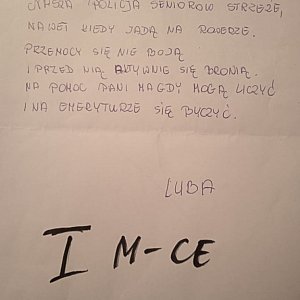 NASZA POLICJA SENIORÓW STRZEŻE,
NAWET KIEDY JADĄ NA ROWERZE.
PRZEMOCY SIĘ NIE BOJĄ
I PRZED NIĄ AKTYWNIE SIĘ BRONIĄ.
NA POMOC PANI MAGDY MOGĄ LICZYĆ
I NA EMERYTURZE SIĘ BYCZYĆ.
LUBA
I M-CE